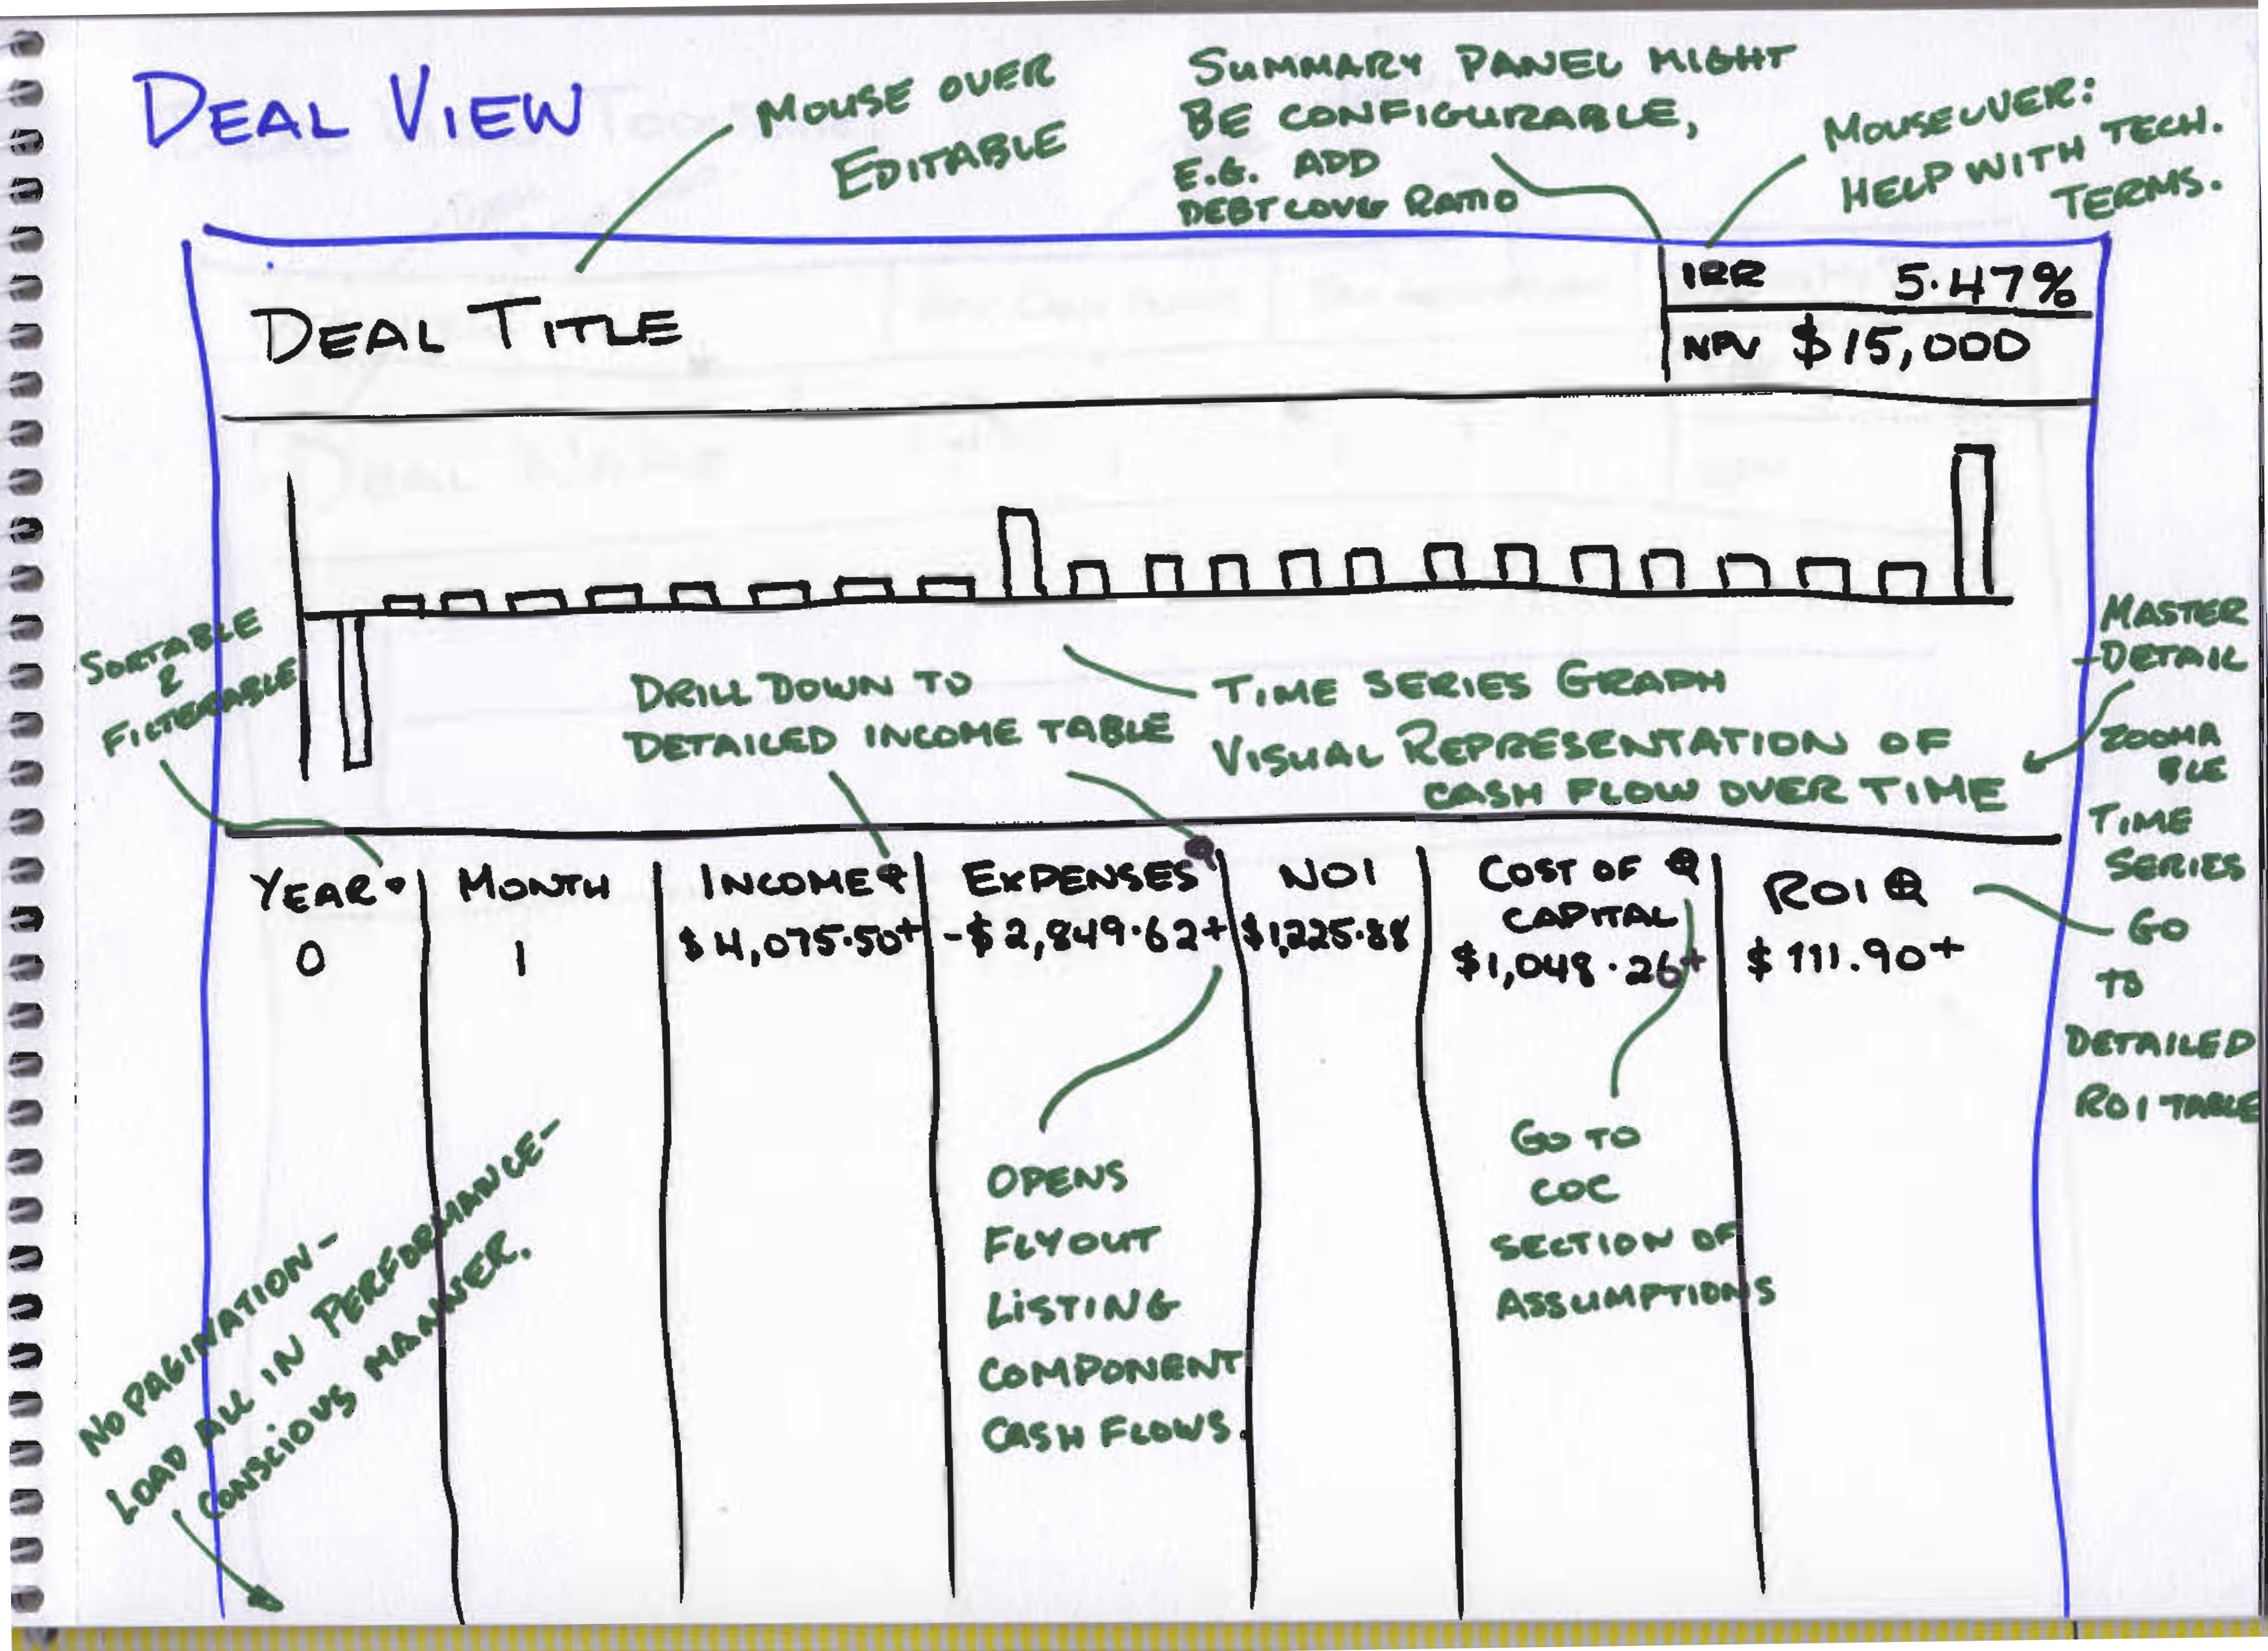 DEAL VIEW
MOUSE OVER
EDITABLE
SUMMARY PANEL MIGHT
BE CONFIGURABLE,
E.G. ADD
DEBT COVG RATIO
MOUSEOVER:
HELP WITH TECH.
TERMS.
DEAL TITLE
IRR 5.47%
NPV $15,000
SORTABLE
&
FILTERABLE
DRILL DOWN TO
DETAILED INCOME TABLE
TIME SERIES GRAPH
VISUAL REPRESENTATION OF
CASH FLOW OVER TIME
MASTER
-DETAIL
ZOOMA
BLE
TIME
SERIES
YEAR
0
MONTH
1
INCOME
$4,075.50+
EXPENSES
-$2,849.62+
NOI
$1,225.88
COST OF
CAPITAL
$1,048.26+
ROI
$111.90+
GO
TO
DETAILED
ROI TABLE
OPENS
FLYOUT
LISTING
COMPONENT
CASH FLOWS.
GO TO
COC
SECTION OF
ASSUMPTIONS
NO PAGINATION-
LOAD ALL IN PERFORMANCE-
CONSCIOUS MANNER.